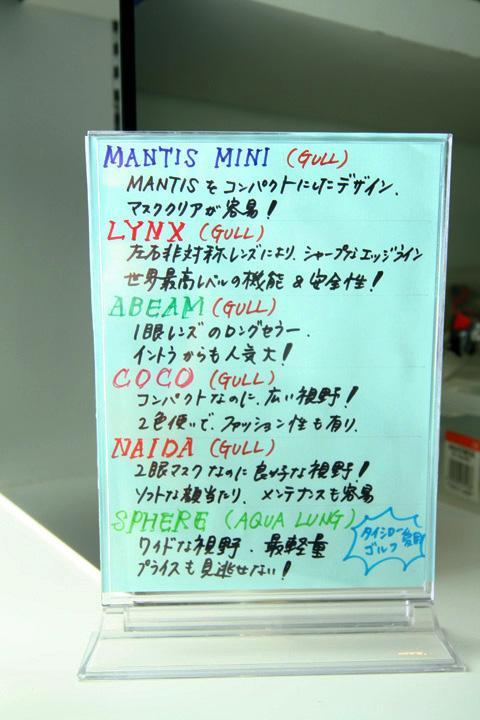 MANTIS MINI (GULL)
MANTISをコンパクトにしたデザイン.
マスククリアが容易!
LYNX (GULL)
左右非対称レンズにより、シャープなエッジライン
世界最高レベルの機能&安全性!
ABEAM (GULL)
1眼レンズのロングセラー.
イントラからも人気大!
COCO (GULL)
コンパクトなのに、広い視野!
2色使いで、ファッション性も有り、
NAIDA (GULL)
2眼マスクなのに良好な視野!
ソフトな顔当たり、メンテナスも容易
SPHERE (AQUA LUNG)
ワイドな視野.最軽量
プライスも見逃せない!
タイシロー
ゴルフ